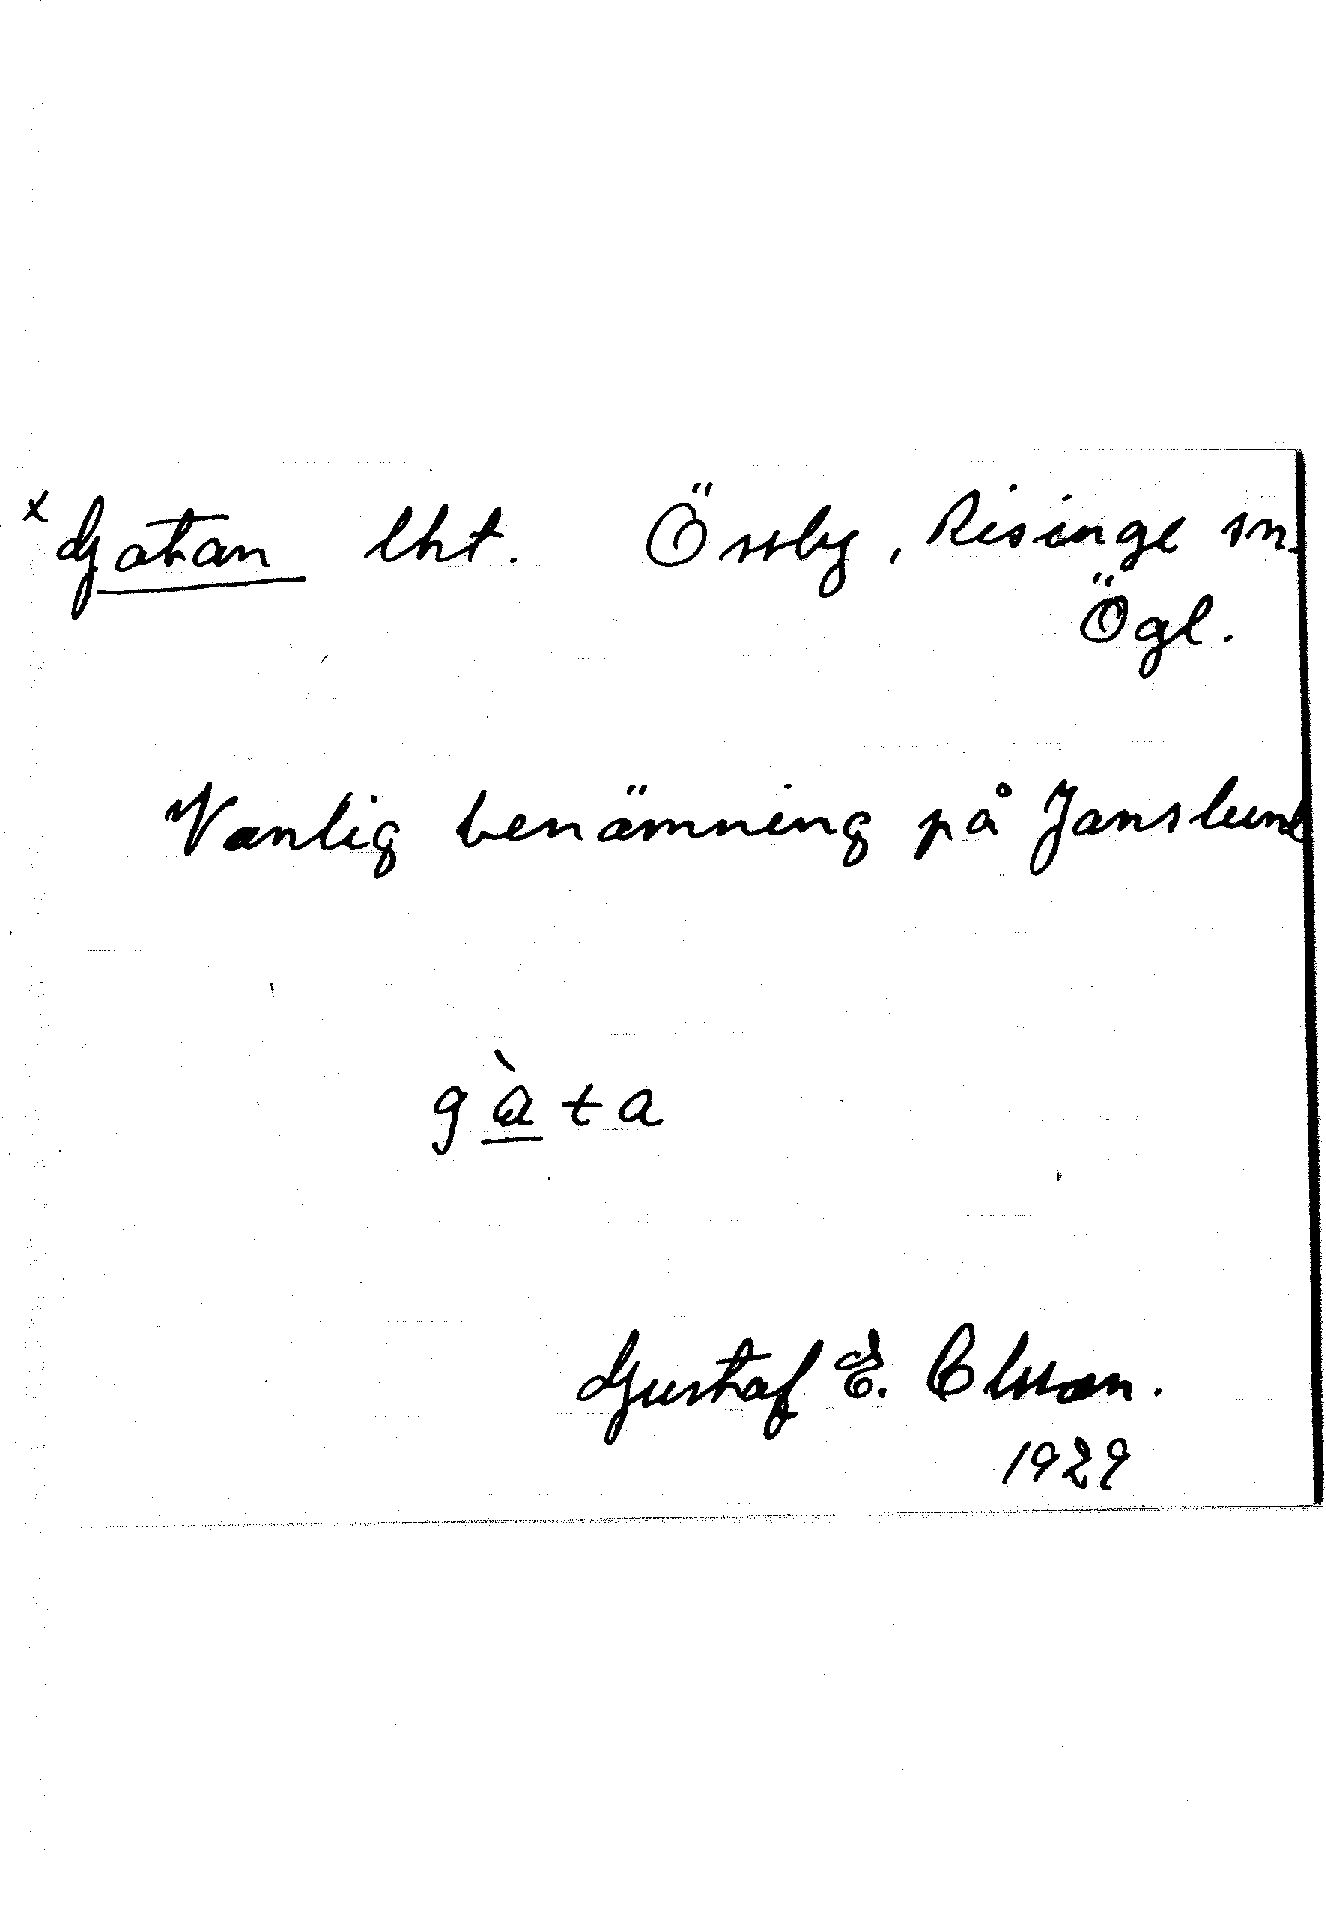 x Gatan lht. Össby, Risinge sn.
Ögl.
Vanlig benämning på Janslund
gàta
Gustaf E. Olsson.
1929